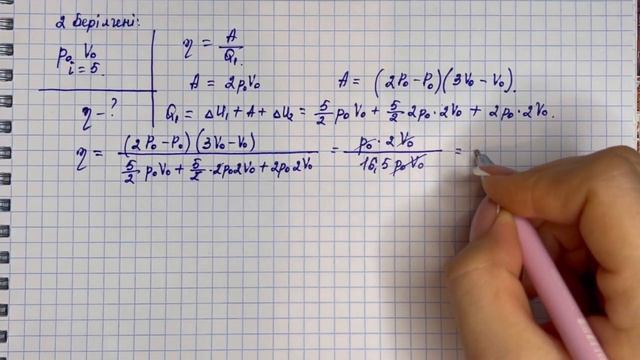 2 Берілгені:
p₀ V₀
i = 5.
η - ?
η = A/Q₁.
A = 2p₀V₀ A = (2P₀ - P₀)(3V₀ - V₀).
Q₁ = ΔU₁ + A + ΔU₂ = 5/2 p₀V₀ + 5/2 · 2p₀ · 2V₀ + 2p₀ · 2V₀.
η = (2P₀ - P₀)(3V₀ - V₀) / (5/2 p₀V₀ + 5/2 · 2p₀2V₀ + 2p₀2V₀) = p₀ · 2V₀ / 16,5 p₀V₀ =